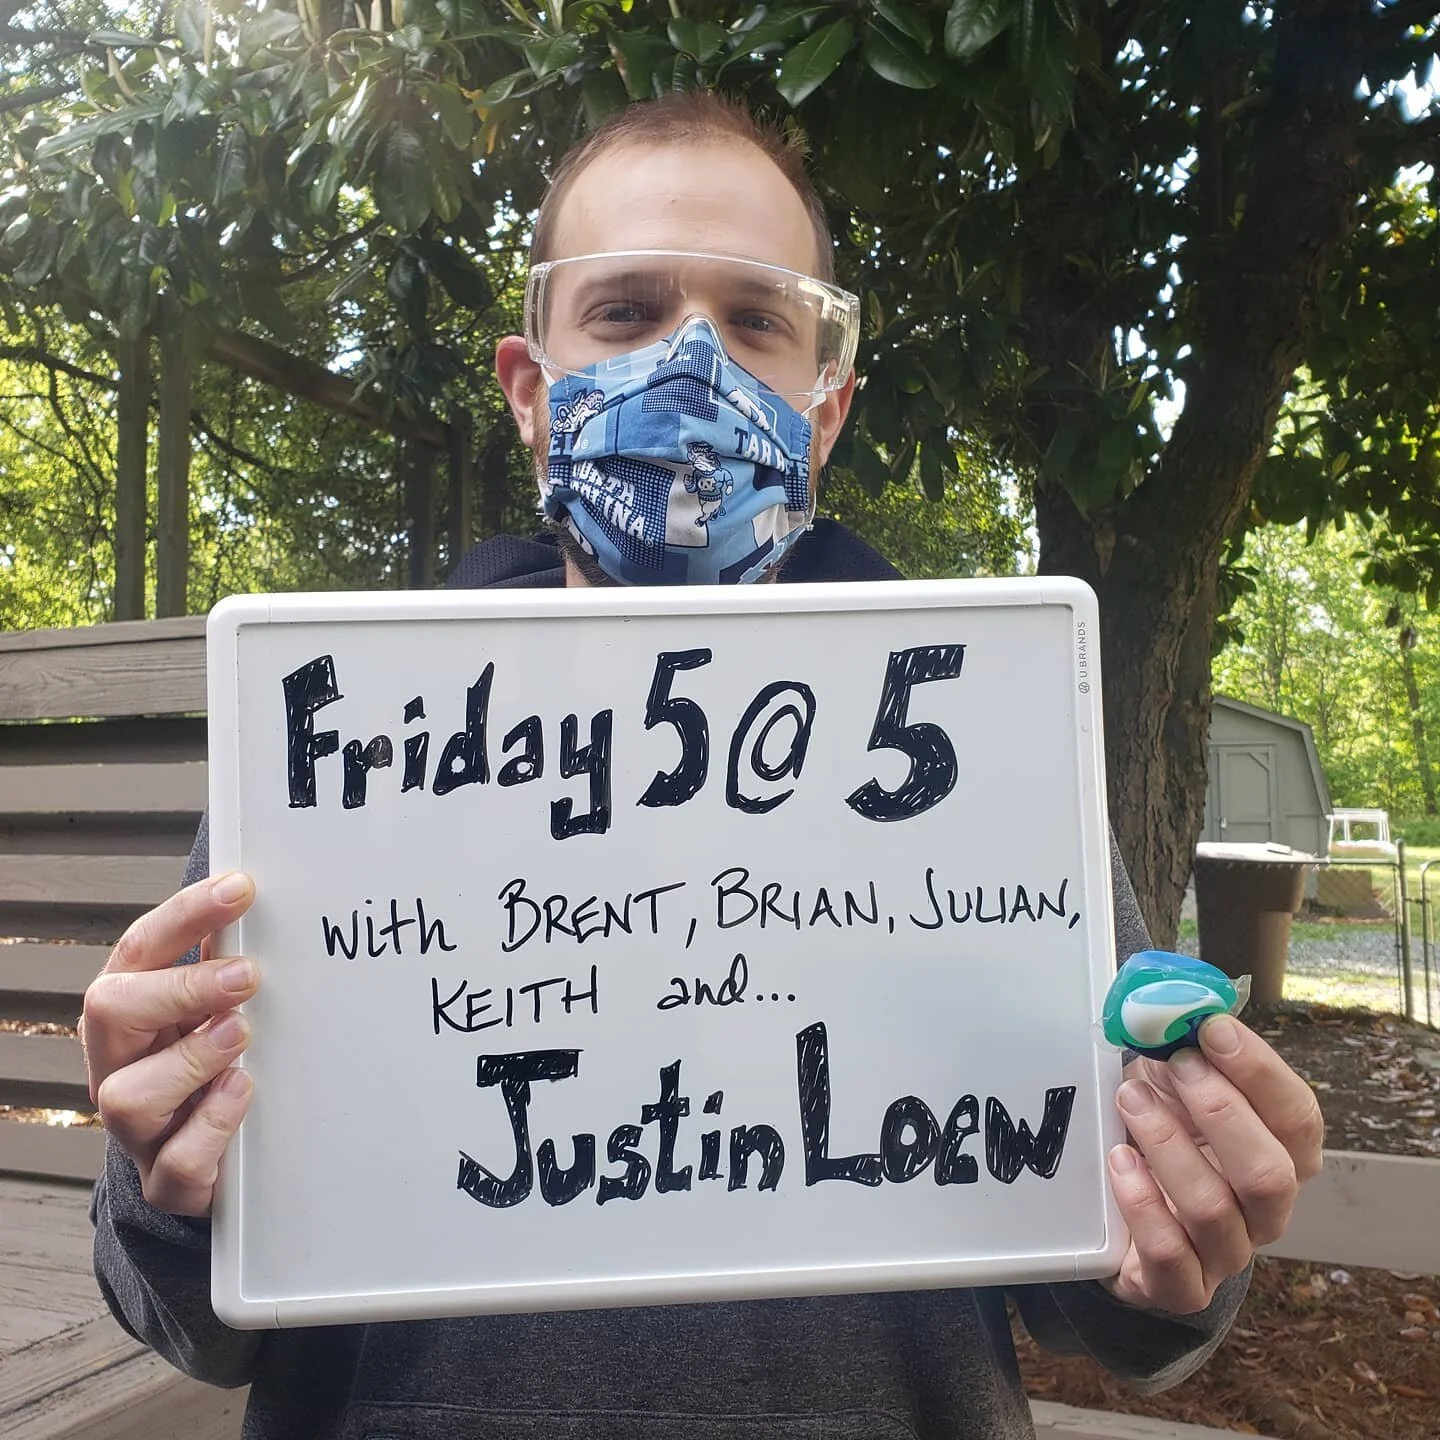 TAR
NORTH
CAROLINA
U BRANDS
Friday 5@5
with BRENT, BRIAN, JULIAN,
KEITH and...
Justin Loew